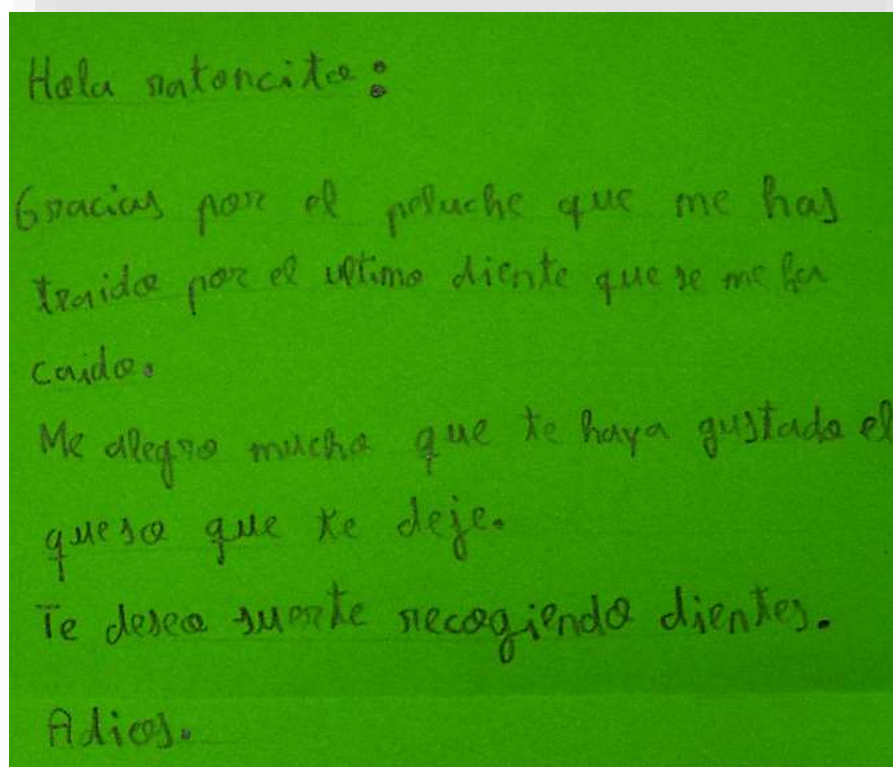 Hola ratoncito:
Gracias por el peluche que me has
traido por el ultimo diente que se me ha
caido.
Me alegro mucho que te haya gustado el
queso que te deje.
Te deseo suerte recogiendo dientes.
Adios.